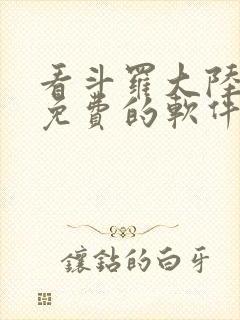 看斗羅大陸
免費的軟件
鑲鉆的白牙